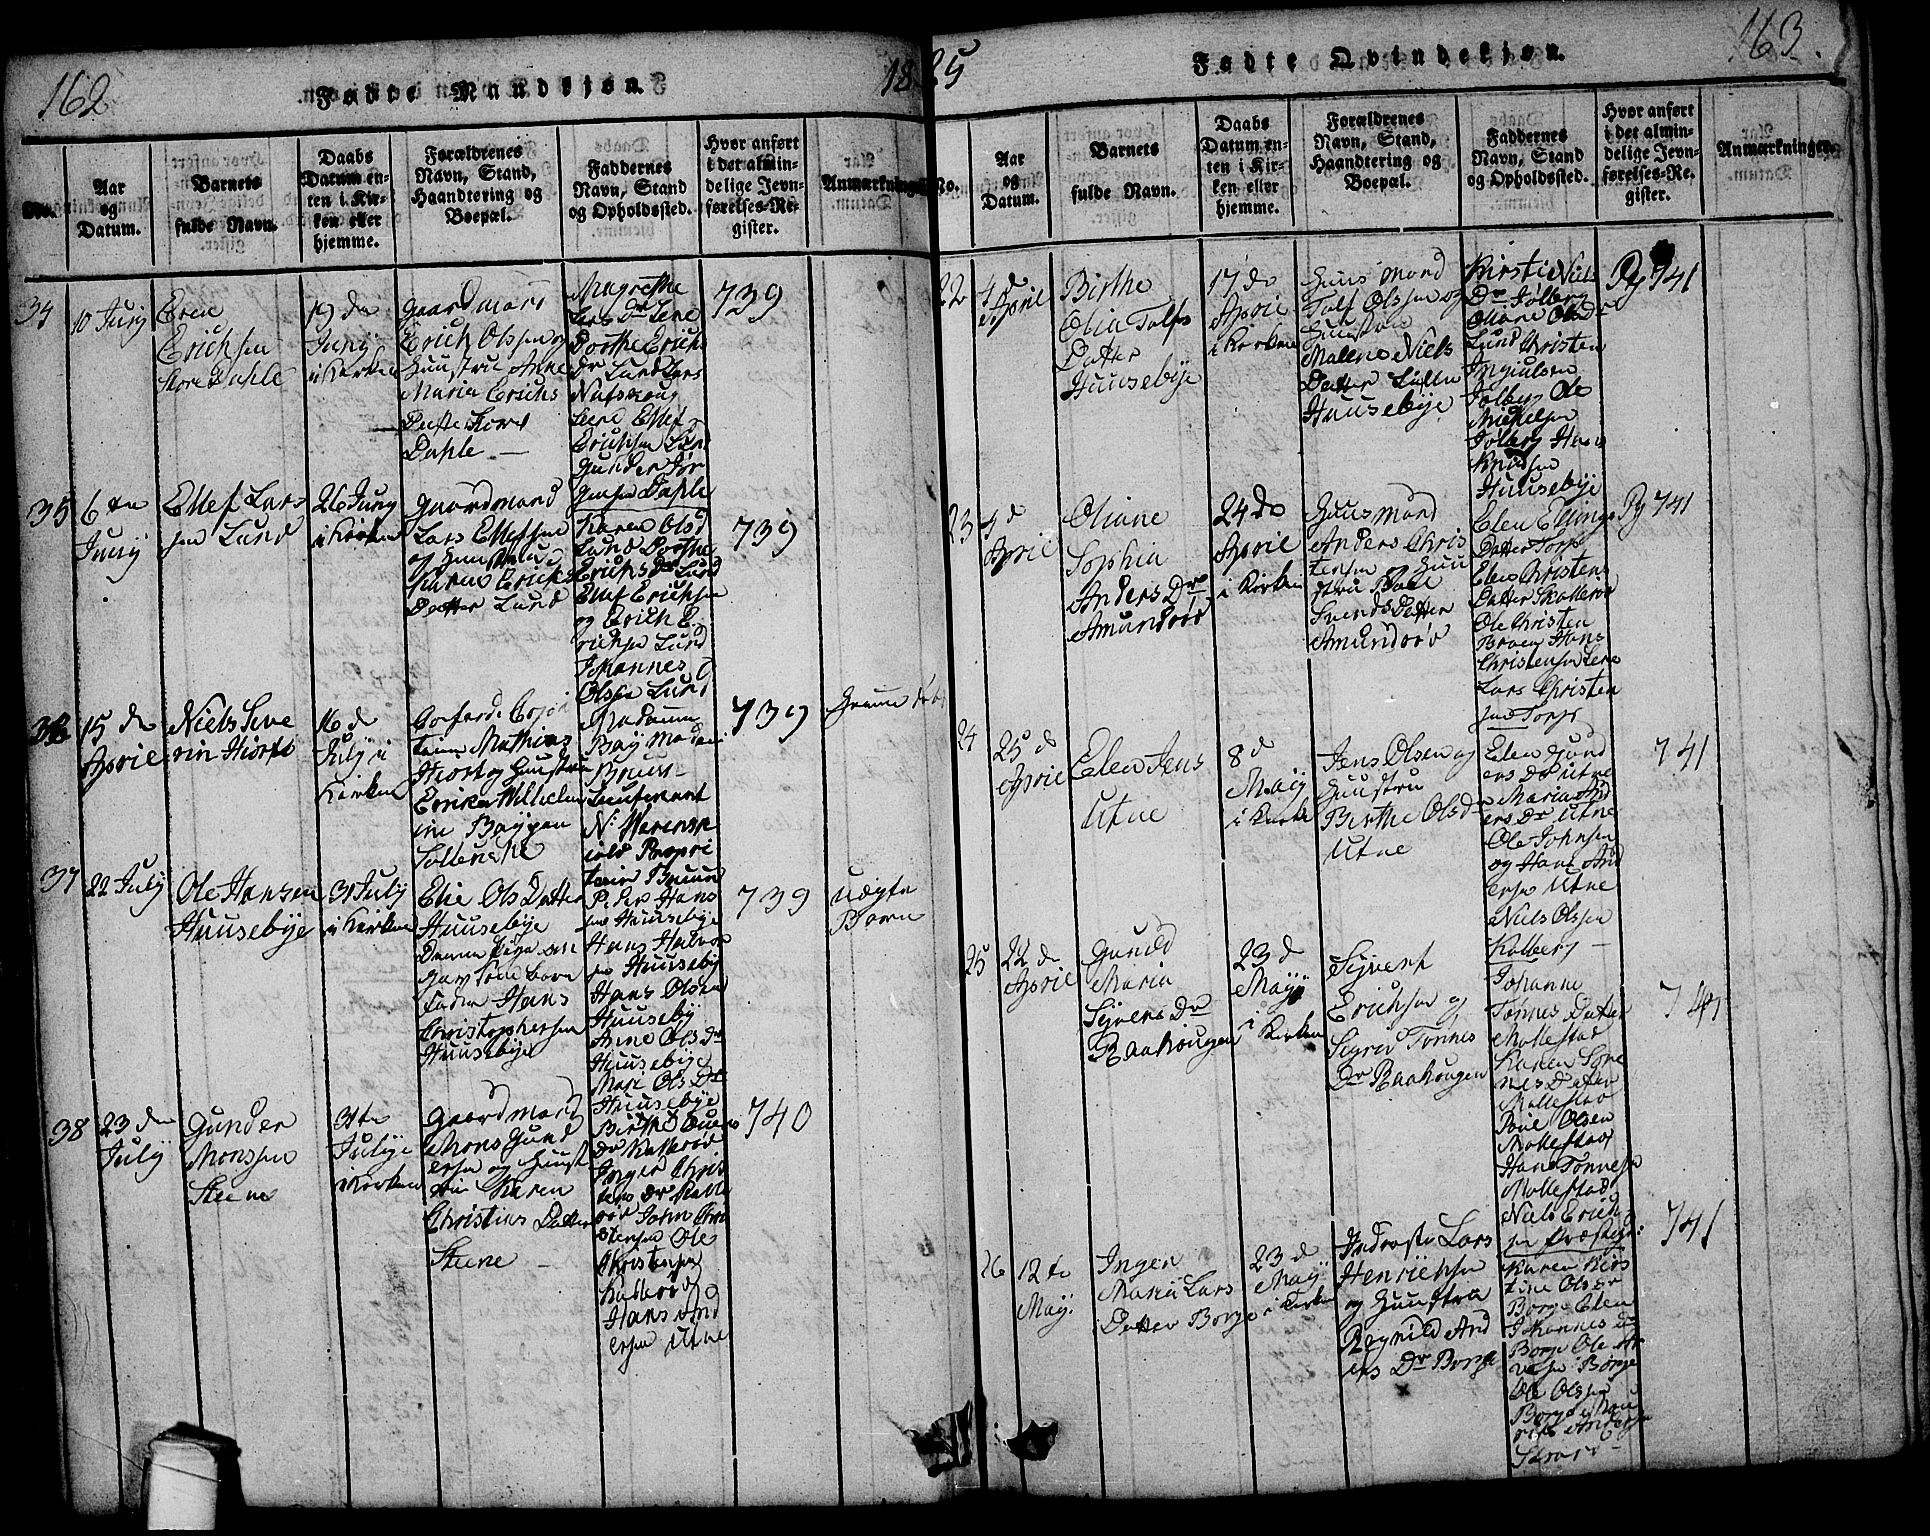 162
Fødte Mandkjøn.
18
No.
Aar
og
Datum.
Barnets
fulde Navn.
Daabs
Datum en-
ten i Kir-
ken eller
hjemme.
Forældrenes
Navn, Stand,
Haandtering og
Boepæl.
Faddernes
Navn, Stand
og Opholdssted.
Hvor anført
i det almin-
delige Jevn-
førelses-Re-
gister.
Anmærkninger
34
10 Juny
Erichsen
Store Dahle
19 de
Juny
i Kirken
Gaardmand
Erich Olssen og
Huustru Anne
Maria Erichs
Datter Store
Dahle
Magrethe
Lars Dr Lene
Dorthe Erichs
Dr Lund Lars
Nafskoug
Ellef
Erichsen Lund
Gunder Jør
gensen Dahle
739
35
6 te
Juny
Ellef Lars
sen Lund
26 Juny
i Kirken
Gaardmand
Lars Ellefsen
og Huustrue
Karen Erichs
Datter Lund
Karen Olsd
Lund Dorthe
Erichs Dr Lund
Ellef Erichsen
og Erich E
richsen Lund
Johannes
Olssen Lund
739
36
15 de
Aprie
Niels Seve
rin Hiorth
16 d
July i
Kirken
Mathias
Hiort og Huustru
Erika Wilhelm
ine Bay paa
Madame
Bay Madam
Bruun
Lieutenant
N: Warensk
iold Propri
tair Bruun
739
Hjemme døbt
37
22 July
Ole Hansen
Huusebye
31 July
i Kirken
Elie Ols Datter
Huusebye
Fader Hans
Christophersen
Huusebye
Peder Hans
sen Huusebye
Hans Halvor
sen Huuseby
Hans Olsen
Huuseby
Anne Ols Dr
Huusebye
Mari Ols Dr
Huusebye
739
Uægte
Barn
38
23 de
July
Gunder
Monsen
Steene
31te
Julye
i Kirken
Gaardmand
Mons Gund
ersen og Huust
rue Karen
Christens Datter
Steene
Birthe
Dr Kallerød
Inger Chris
tens Dr Kalle
rød John Chri
stensen Ole
Christensen
Kallerød
Hans And
ersen Utne
740
25
Fødte Qvindekjøn.
163
No.
Aar
og
Datum.
Barnets
fulde Navn.
Daabs
Datum en-
ten i Kir-
ken eller
hjemme.
Forældrenes
Navn, Stand,
Haandtering og
Boepæl.
Faddernes
Navn, Stand
og Opholdssted.
Hvor anført
i det almin-
delige Jevn-
førelses-Re-
gister.
Anmærkninger
22
4 d
Aprie
Birthe
Olia Tolfs
Datter
Huusebye
17 de
Aprie
i Kirken
Huusmand
Tolf Olssen og
Huustru
Malene Niels
Datter
Huusebye
Kirstie Niels
Dr Tolberg
Oliane Olsdr
Lund Christen
Ingiulsen
Tolberg Ole
Michelsen
Tolberg Hans
Knudsen
Huusebye
Pg 741
23
4 d
Aprie
Oliane
Sophia
Anders Dr
Amundrød
24 de
Aprie
i Kirken
Huusmand
Anders Chris
tensen Huu
stru
Svends Datter
Amundrød
Elen Ellings
Datter Torp
Elen Christens
Datter Skallerød
Ole Christen
Braen Hans
Christensen Lene
Lars Christen
sen Torp
Pg 741
24
25 d
Aprie
Elen Jens
Utne
8 d
Maiy
i Kirke
Jens Olsen og
Huustru
Birthe Olsd
Utne
Elen Gund
ers Dr Utne
Maria And
ers Dr Utne
Ole Johnsen
og Hans And
ersen Utne
Niels Olssen
Kolberg
741
25
22 de
Aprie
Gunild
Maria
Syvers Dr
Raahougen
23 d
May
i Kirken
Syvert
Erichsen og
Sigrid Tønnes
Dr Raahougen
Johanne
Tønnes Datter
Mollestad
Karen Tøn
nes Datter
Mollestad
Poul Olsen
Mollestad
Hans Tønnesen
Mollestad
Niels Erich
sen Præsteg
741
26
12 te
May.
Inger
Maria Lars
Datter Borge
23 d
May
i Kirken
Inderste Lars
Henrichsen
og Huustru
Regnild And
ers Dr Borge
Karen Kirs
tine Olsdr
Borge Elen
Johannes dr
Borge Ole
Borge
Ole Olssen
Borge
Andersen
741